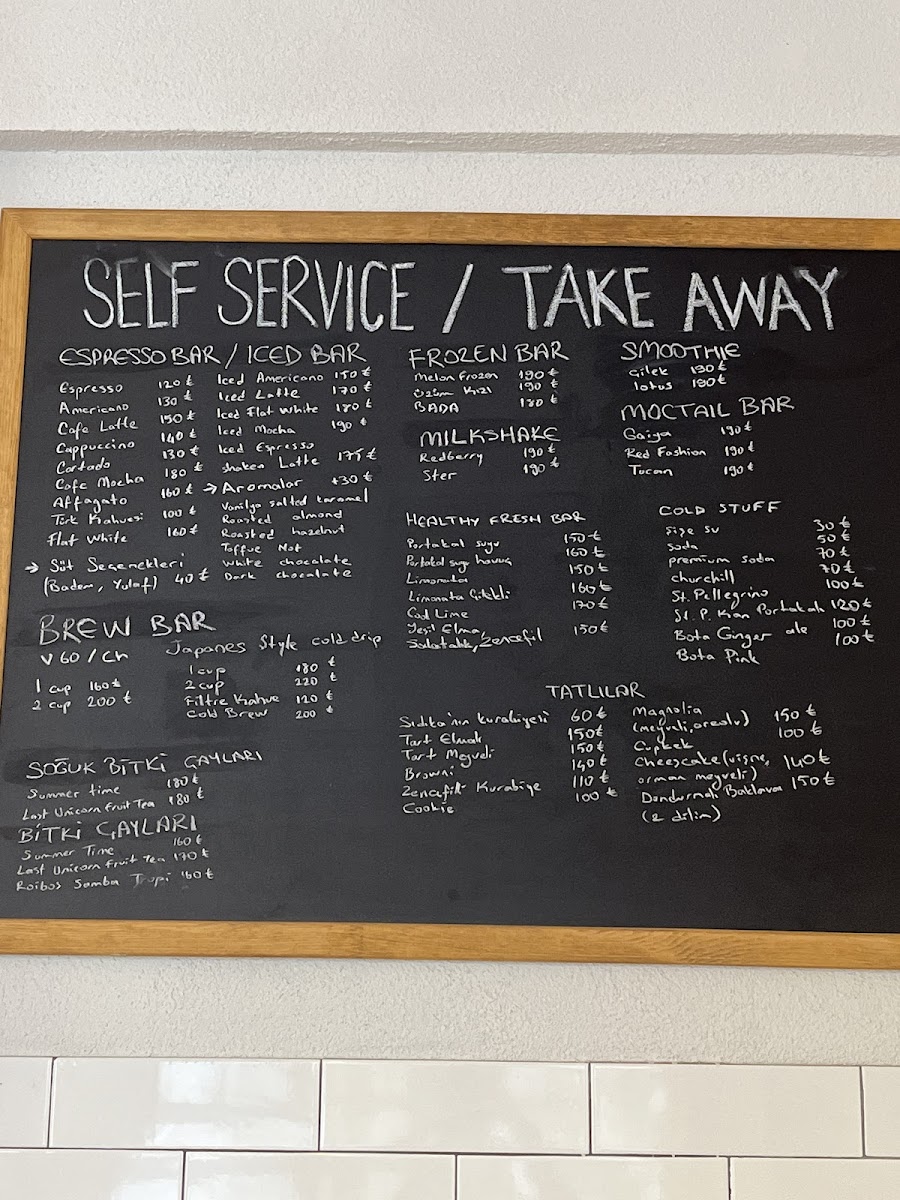 SELF SERVICE / TAKE AWAY
ESPRESSO BAR / ICED BAR
Espresso 120 ₺
Americano 130 ₺
Cafe Latte 150 ₺
Cappuccino 140 ₺
Cortado 130 ₺
Cafe Mocha 180 ₺
Affagato 160 ₺
Türk Kahvesi 100 ₺
Flat White 160 ₺
→ Süt Seçenekleri
(Badem, Yulaf) 40 ₺
Iced Americano 150 ₺
Iced Latte 170 ₺
Iced Flat White 180 ₺
Iced Mocha 190 ₺
Iced Espresso
shaken Latte 175 ₺
→ Aromalar +30 ₺
Vanilya salted karamel
Roasted almond
Roasted hazelnut
Toffue Not
White chocalate
Dark chocalate
BREW BAR
V60 / Ch
1 cup 160 ₺
2 cup 200 ₺
Japanes Style cold drip
1 cup 180 ₺
2 cup 220 ₺
Filtre Kahve 120 ₺
Cold Brew 200 ₺
SOĞUK BİTKİ ÇAYLARI
Summer time 180 ₺
Last Unicorn Fruit Tea 180 ₺
BİTKİ ÇAYLARI
Summer Time 160 ₺
Last Unicorn Fruit Tea 170 ₺
Roibos Samba Tropi 160 ₺
FROZEN BAR
Melon Frozen 190 ₺
Üzüm Kızı 190 ₺
BADA 180 ₺
MILKSHAKE
Redberry 190 ₺
Ster 190 ₺
SMOOTHIE
Çilek 190 ₺
lotus 190 ₺
MOCTAIL BAR
Gaiya 190 ₺
Red Fashion 190 ₺
Tucan 190 ₺
HEALTHY FRESH BAR
Portakal suyu 150 ₺
Portakal suyu havuç 160 ₺
Limonata 150 ₺
Limonata Çilekli 160 ₺
Cool Lime 170 ₺
Yeşil Elma,
Salatalık, Zencefil 150 ₺
COLD STUFF
Şişe su 30 ₺
Soda 50 ₺
premium soda 70 ₺
churchill 70 ₺
St. Pellegrino 100 ₺
St. P. Kan Portakalı 120 ₺
Bota Ginger ale 100 ₺
Bota Pink 100 ₺
TATLILAR
Sıdıka'nın kurabiyesi 60 ₺
Tart Elmalı 150 ₺
Tart Meyveli 150 ₺
Browni 140 ₺
Zencefilli Kurabiye 110 ₺
Cookie 100 ₺
Magnolia
(meyveli, oreolu) 150 ₺
Cupkek 100 ₺
Cheescake (vişne,
orman meyveli) 140 ₺
Dondurmalı Baklava 150 ₺
(2 dilim)